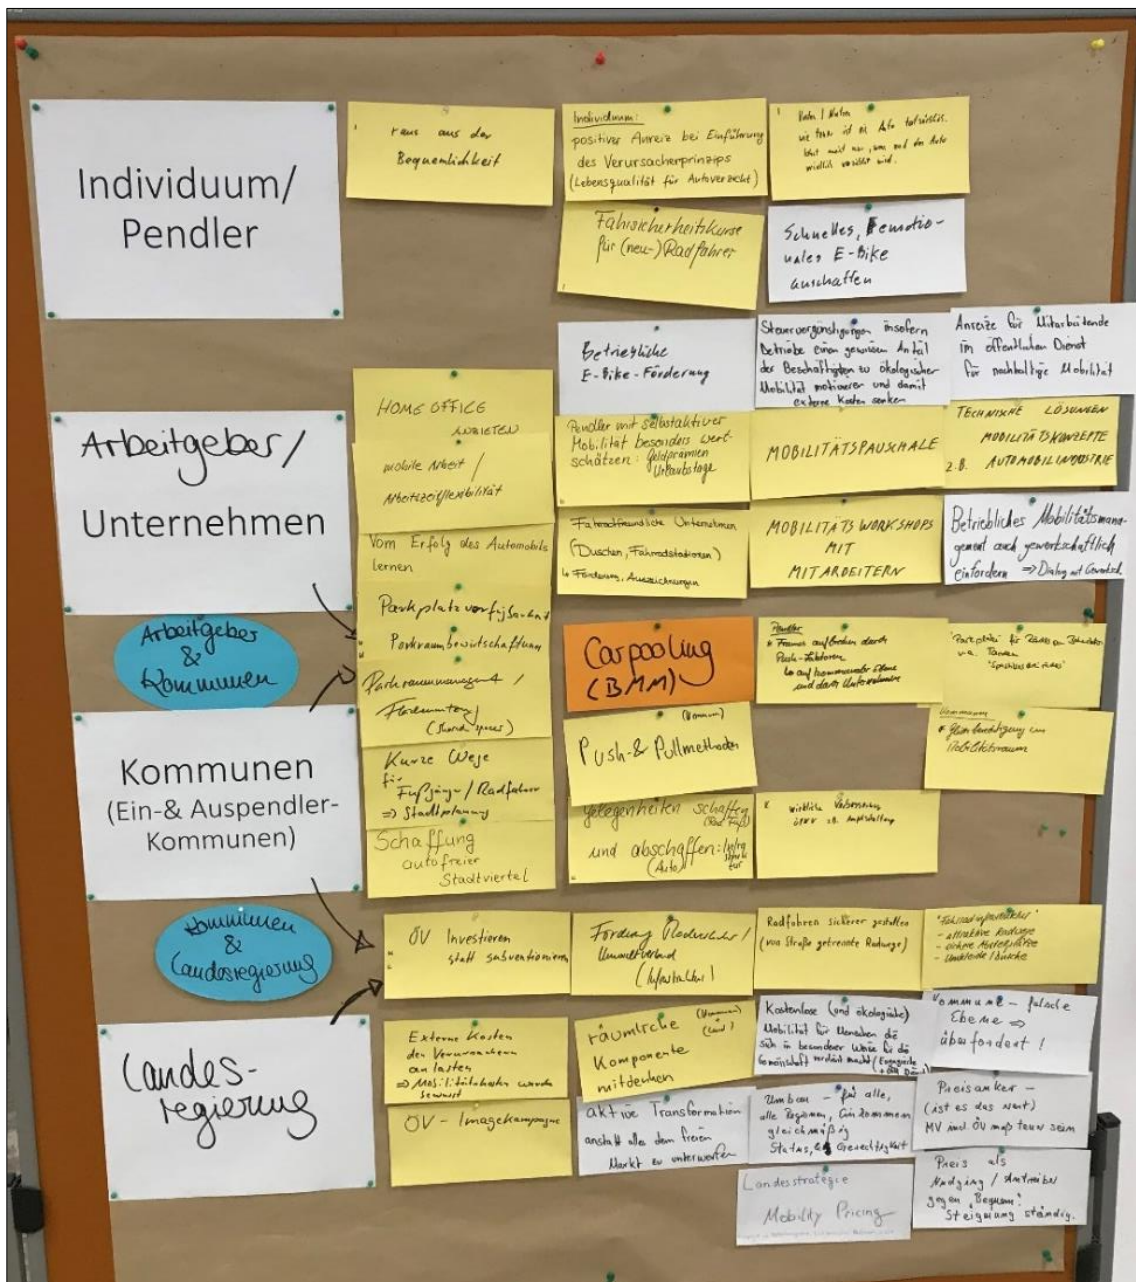 Individuum/
Pendler
raus aus der
Bequemlichkeit
Individuum:
positiver Anreiz bei Einführung
des Verursacherprinzips
(Lebensqualität für Autoverzicht)
wie teuer ist ein Auto tatsächlich.
wirklich verzichtet wird.
Fahrsicherheitskurse
für (neu-)Radfahrer
Schnelles, emotio-
nales E-Bike
anschaffen
Arbeitgeber/
Unternehmen
Betriebliche
E-Bike-Förderung
Steuervergünstigungen insofern
Betriebe einen gewissen Anteil
der Beschäftigten zu ökologischer
Mobilität motivieren und damit
externe Kosten senken
Anreize für Mitarbeitende
im öffentlichen Dienst
für nachhaltige Mobilität
HOME OFFICE
ANBIETEN
mobile Arbeit /
Arbeitszeitflexibilität
Pendler mit selbstaktiver
Mobilität besonders wert-
schätzen: Geldprämien
Urlaubstage
MOBILITÄTSPAUSCHALE
TECHNISCHE LÖSUNGEN
MOBILITÄTSKONZEPTE
z.B. AUTOMOBILINDUSTRIE
Vom Erfolg des Automobils
lernen
Fahrradfreundliche Unternehmen
(Duschen, Fahrradstationen)
↳ Förderung, Auszeichnungen
MOBILITÄTSWORKSHOPS
MIT
MITARBEITERN
Betriebliches Mobilitätsmana-
gement auch gewerkschaftlich
einfordern ⇒ Dialog mit Gewerksch.
Arbeitgeber
&
Kommunen
Parkplatzverfügbarkeit
Parkraumbewirtschaftung
Parkraummanagement /
Flächennutzung
(Shared spaces)
Carpooling
(BMM)
Pendler
Push-Faktoren
↳ auf kommunaler Ebene
und durch Unternehmen
Kommunen
(Ein-& Auspendler-
Kommunen)
Kurze Wege
für
Fußgänger/Radfahrer
⇒ Stadtplanung
Schaffung
autofreier
Stadtviertel
(Kommune)
Push-& Pullmethoden
Gelegenheiten schaffen
(Rad, Fuß)
und abschaffen: Infra
struk
tur
(Auto)
Kommunen
Gleichberechtigung im
Mobilitätsraum
Kommunen
&
Landesregierung
ÖV Investieren
statt subventionieren
Förderung Radverkehr /
Umweltverbund
(Infrastruktur)
Radfahren sicherer gestalten
(von Straße getrennte Radwege)
"Fahrradinfrastruktur"
- attraktive Radwege
- sichere Abstellplätze
- Umkleide / Dusche
Landes-
regierung
Externe Kosten
den Verursachern
anlasten
⇒ Mobilitätskosten werden
bewusst
räumliche (Kommunen)
(Land)
Komponente
mitdenken
Kostenlose (und ökologische)
Mobilität für Menschen die
sich in besonderer Weise für die
Gemeinschaft verdient macht
Kommune - falsche
Ebene ⇒
überfordert!
ÖV - Imagekampagne
aktive Transformation
anstatt alles dem freien
Markt zu unterwerfen
Umbau - für alle,
alle Regionen, Einkommen
gleichmäßig
Status, Gerechtigkeit
Preisanker -
(ist es das wert)
MV incl ÖV muß teuer sein
Landesstrategie
Mobility Pricing
Preis als
Nudging / Antreiber
gegen "Bequem".
Steigerung ständig.